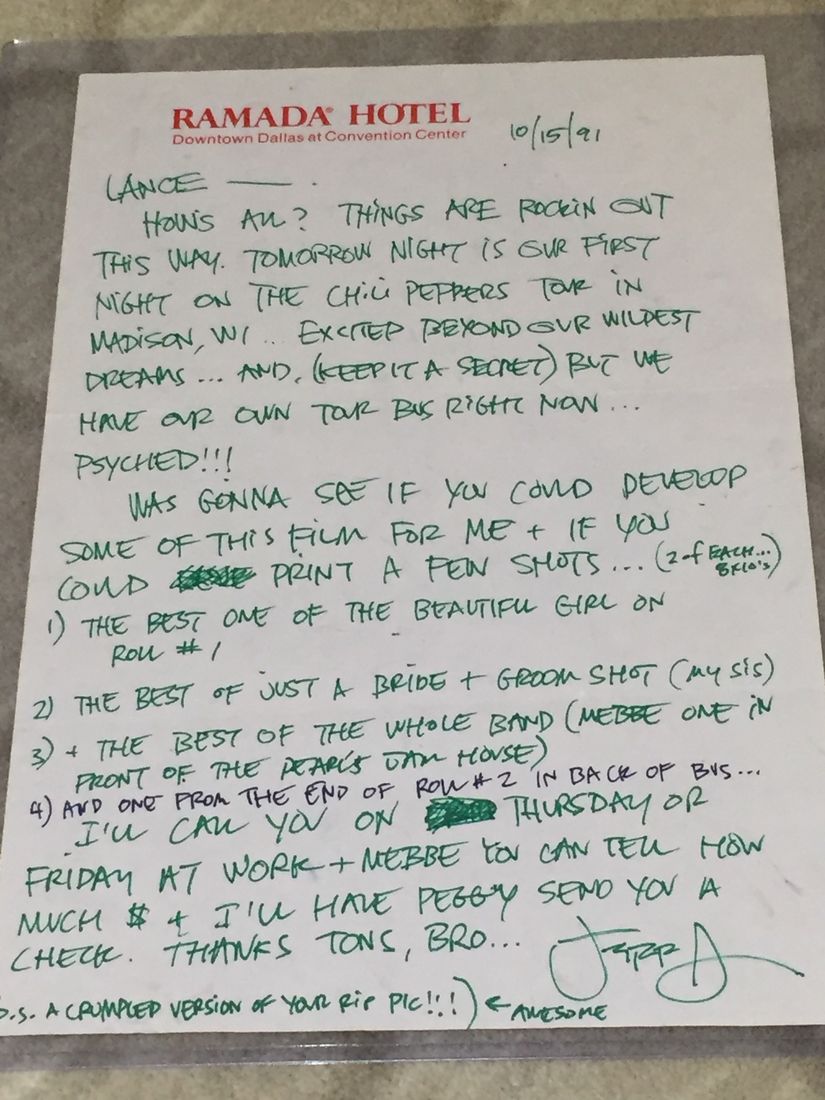 RAMADA® HOTEL
Downtown Dallas at Convention Center
10/15/91
LANCE —
HOW'S ALL? THINGS ARE ROCKIN OUT
THIS WAY. TOMORROW NIGHT IS OUR FIRST
NIGHT ON THE CHILI PEPPERS TOUR IN
MADISON, WI... EXCITED BEYOND OUR WILDEST
DREAMS... AND, (KEEP IT A SECRET) BUT WE
HAVE OUR OWN TOUR BUS RIGHT NOW...
PSYCHED!!!
WAS GONNA SEE IF YOU COULD DEVELOP
SOME OF THIS FILM FOR ME + IF YOU
COULD PRINT A FEW SHOTS... (2 of EACH...
8x10's)
1) THE BEST ONE OF THE BEAUTIFUL GIRL ON
ROLL #1
2) THE BEST OF JUST A BRIDE + GROOM SHOT (MY SIS)
3) + THE BEST OF THE WHOLE BAND (MEBBE ONE IN
FRONT OF THE PEARL'S JAM HOUSE)
4) AND ONE FROM THE END OF ROLL #2 IN BACK OF BUS...
I'LL CALL YOU ON THURSDAY OR
FRIDAY AT WORK + MEBBE YOU CAN TELL HOW
MUCH $ + I'LL HAVE PEGGY SEND YOU A
CHECK. THANKS TONS, BRO...
P.S. A CRUMPLED VERSION OF YOUR RIP PIC!!!) ← AWESOME